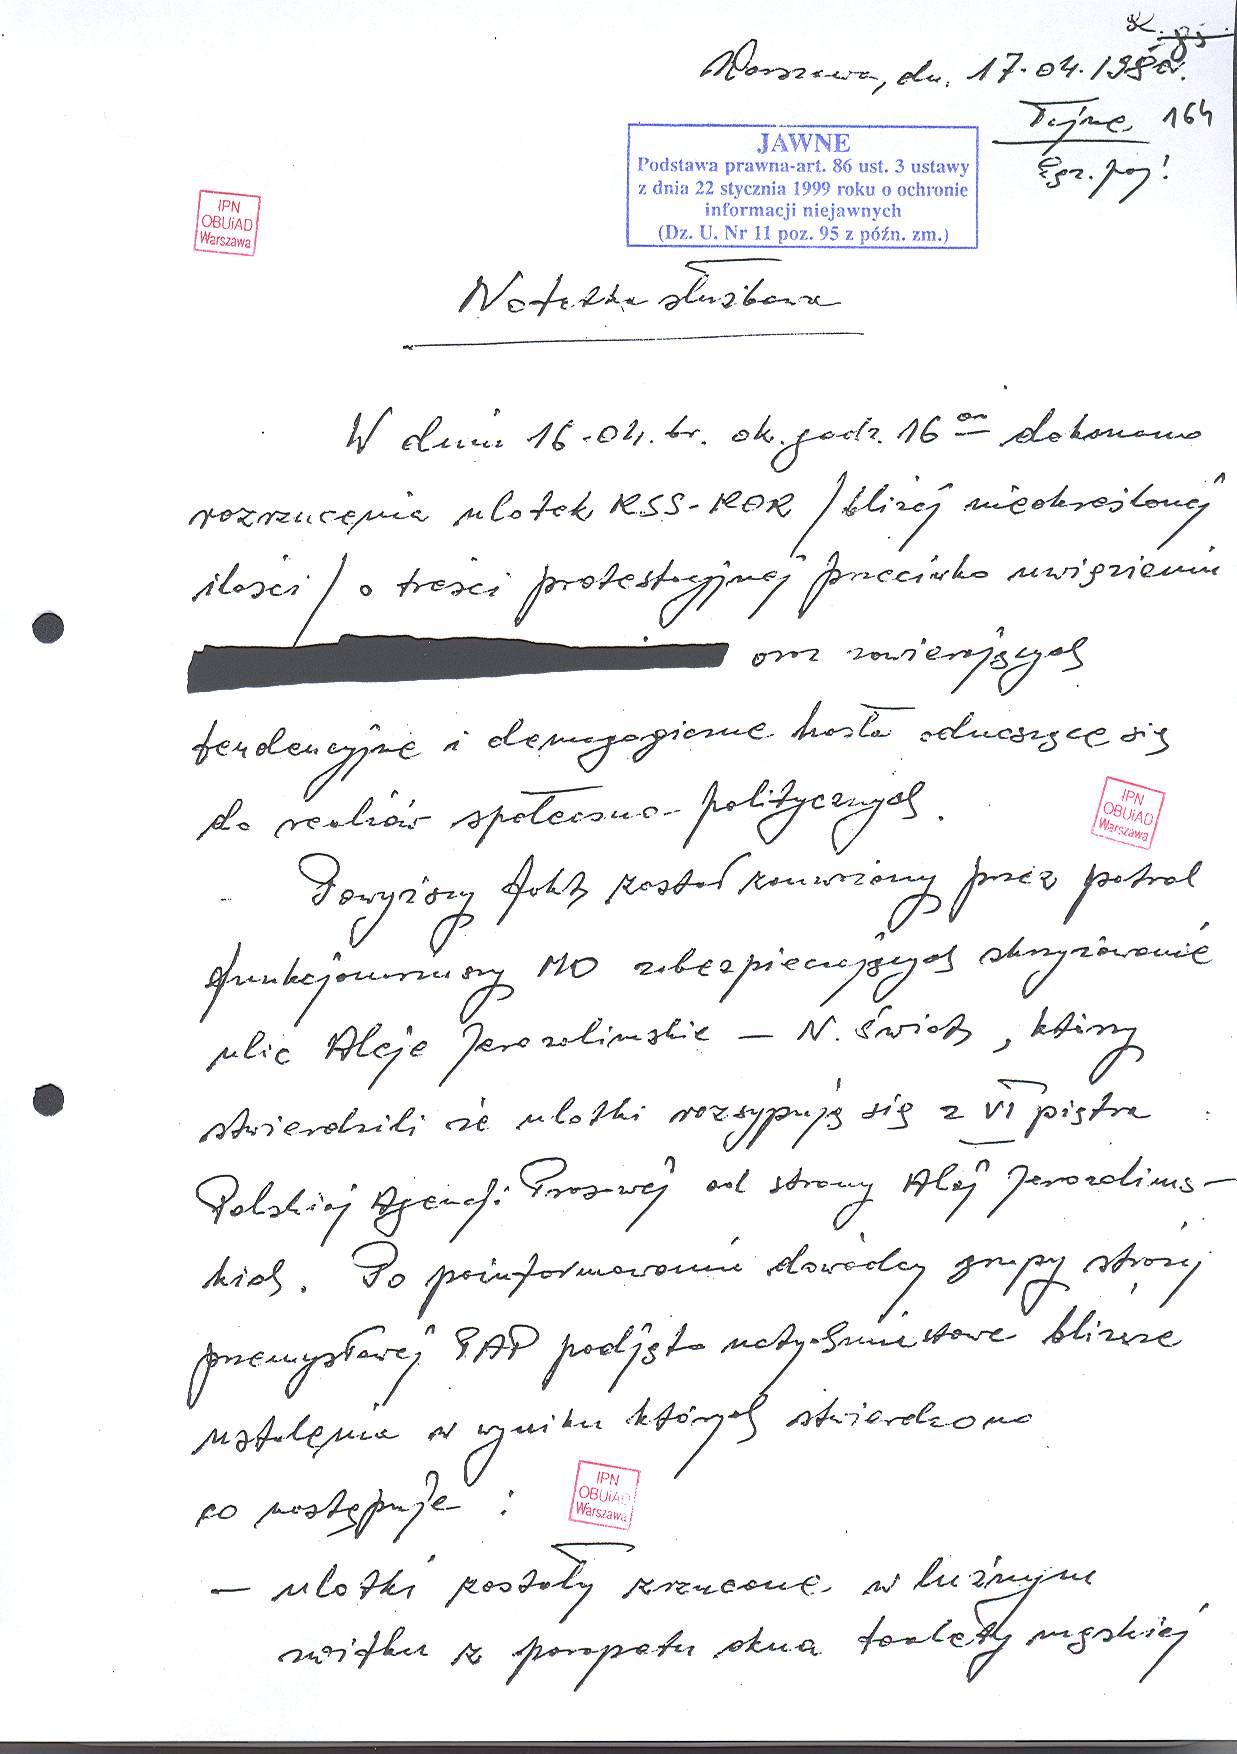 Warszawa, dn. 17.04.1980r.
Tajne 164
Egz. poj!
JAWNE
Podstawa prawna-art. 86 ust. 3 ustawy
z dnia 22 stycznia 1999 roku o ochronie
informacji niejawnych
(Dz. U. Nr 11 poz. 95 z późn. zm.)
IPN
OBUiAD
Warszawa
Notatka służbowa
W dniu 16-04.br. ok. godz. 16 00 dokonano
rozrzucenia ulotek KSS-KOR /bliżej nieokreślonej
ilości/ o treści protestacyjnej przeciwko uwięzieniu
oraz zawierających
tendencyjne i demagogiczne hasła odnoszące się
do realiów społeczno-politycznych.
IPN
OBUiAD
Warszawa
Powyższy fakt został zauważony przez patrol
funkcjonariuszy MO zabezpieczających skrzyżowanie
ulic Aleje Jerozolimskie – N. Świat, którzy
stwierdzili że ulotki rozsypują się z VI piętra
Polskiej Agencji Prasowej od strony Alej Jerozolims-
kich. Po poinformowaniu dowódcy grupy straży
przemysłowej PAP podjęto natychmiastowe bliższe
ustalenia w wyniku których stwierdzono
co następuje :
IPN
OBUiAD
Warszawa
– ulotki zostały zrzucone w luźnym
zwitku z parapetu okna toalety męskiej